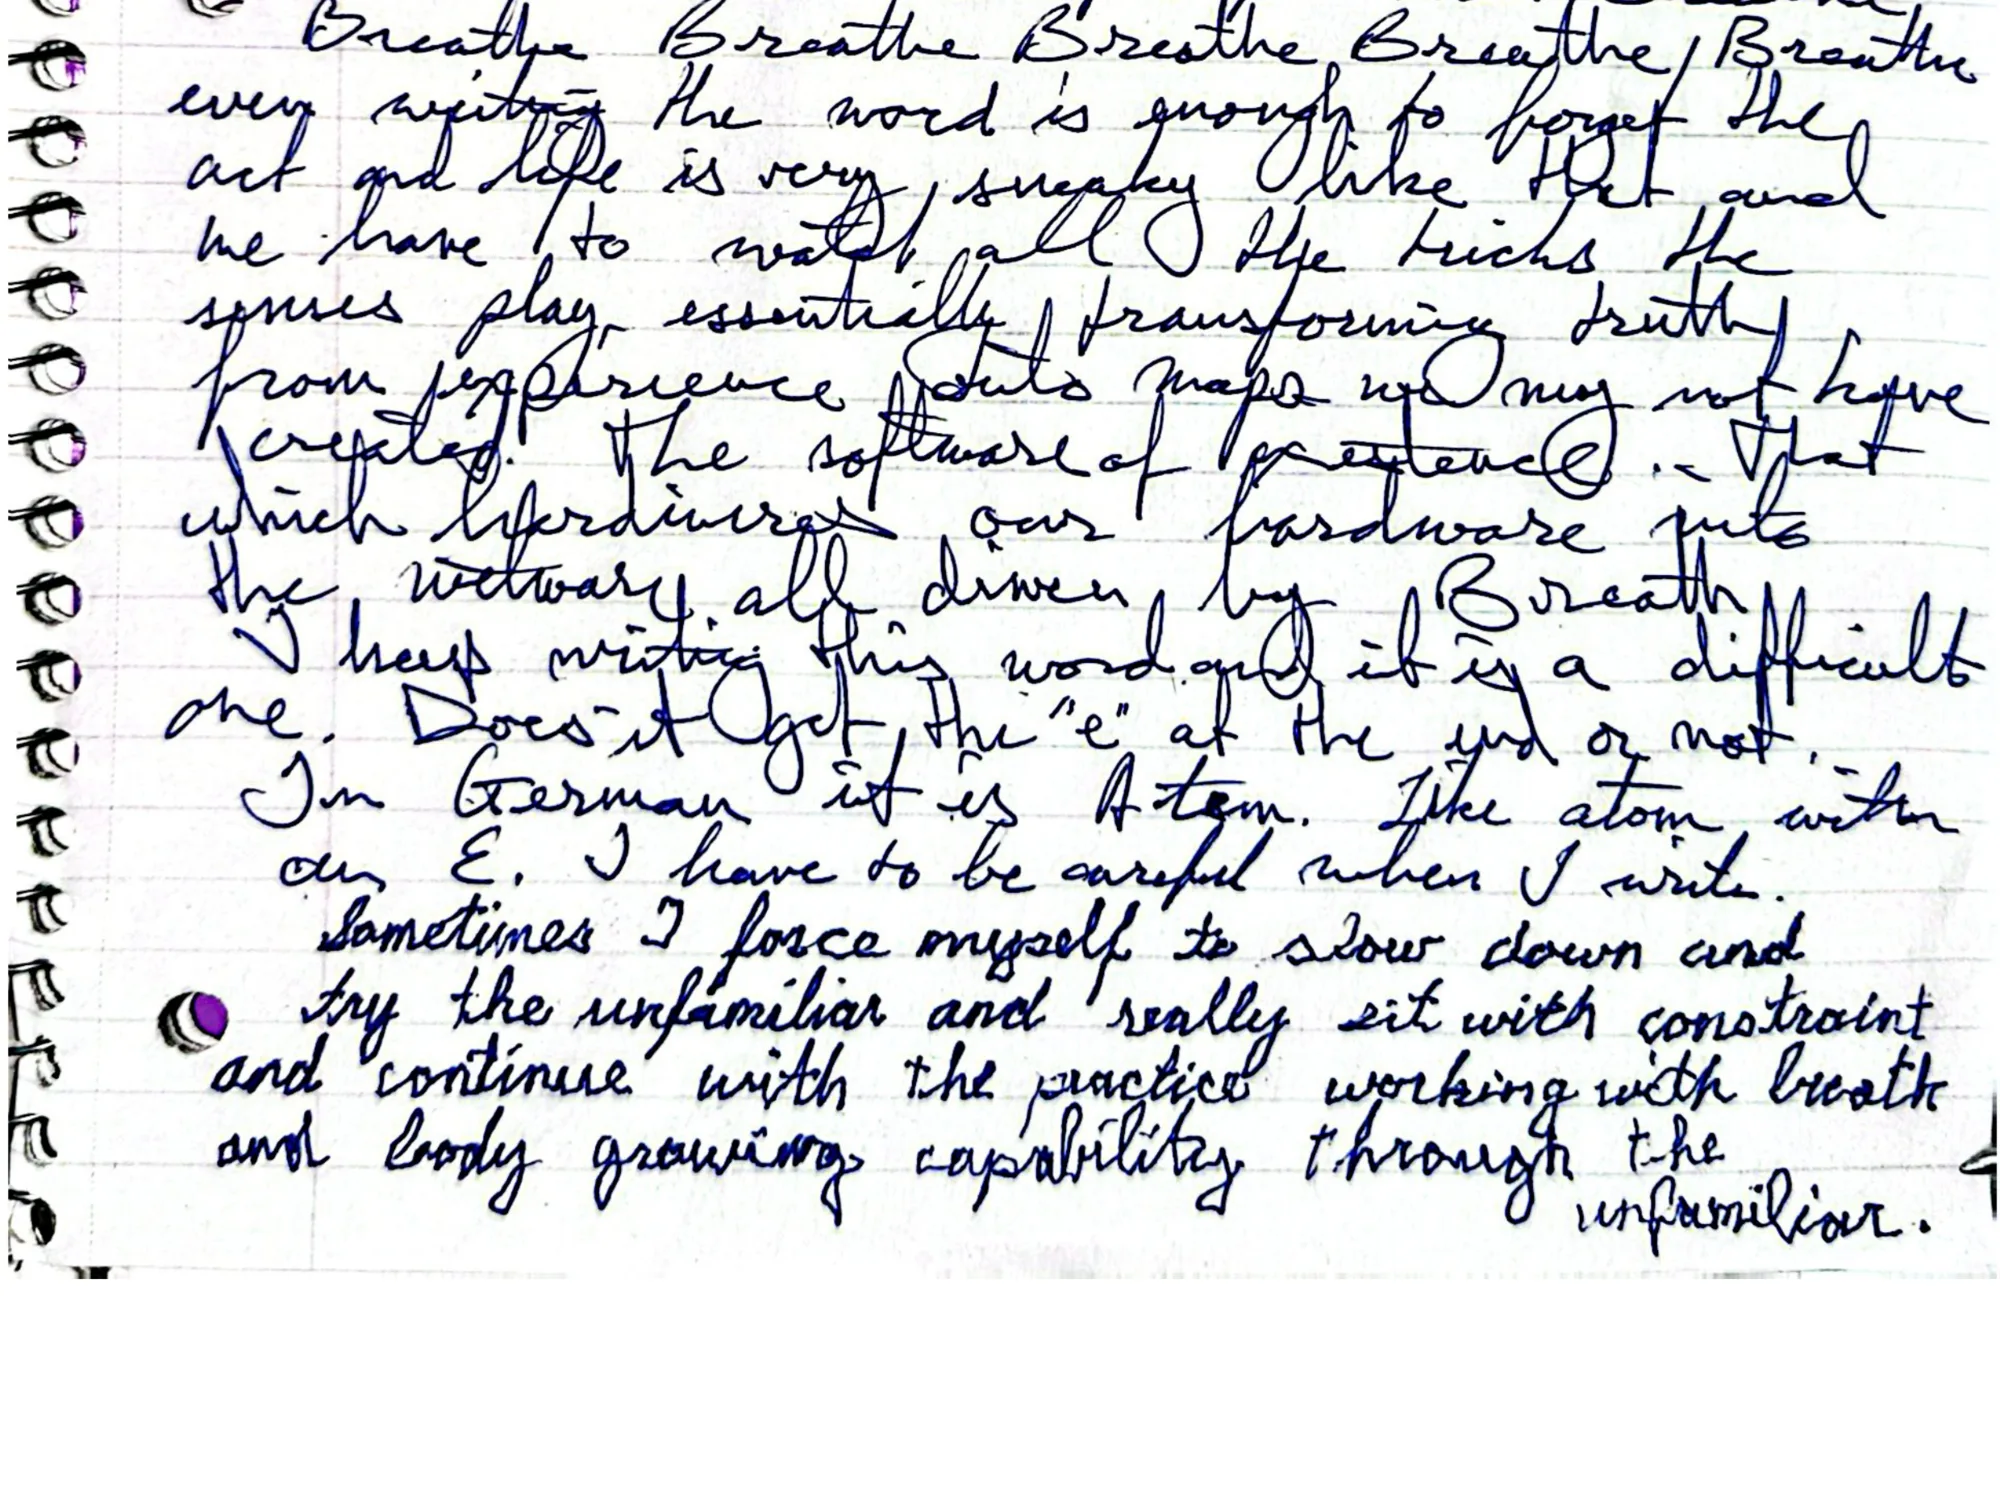 Breathe Breathe Breathe Breathe, Breathe
even writing the word is enough to forget the
act and life is very sneaky like that and
we have to watch all the tricks the
senses play, essentially transforming truth
from experience into maps we may not have
created. The software of existence... That
which our hardware into
the wetware, all driven by Breath
I keep writing this word and it is a difficult
one. Does it get the "e" at the end or not.
In German it is Atem. Like atom with
an E. I have to be careful when I write.
Sometimes I force myself to slow down and
try the unfamiliar and really sit with constraint
and continue with the practice working with breath
and body growing capability through the
unfamiliar.